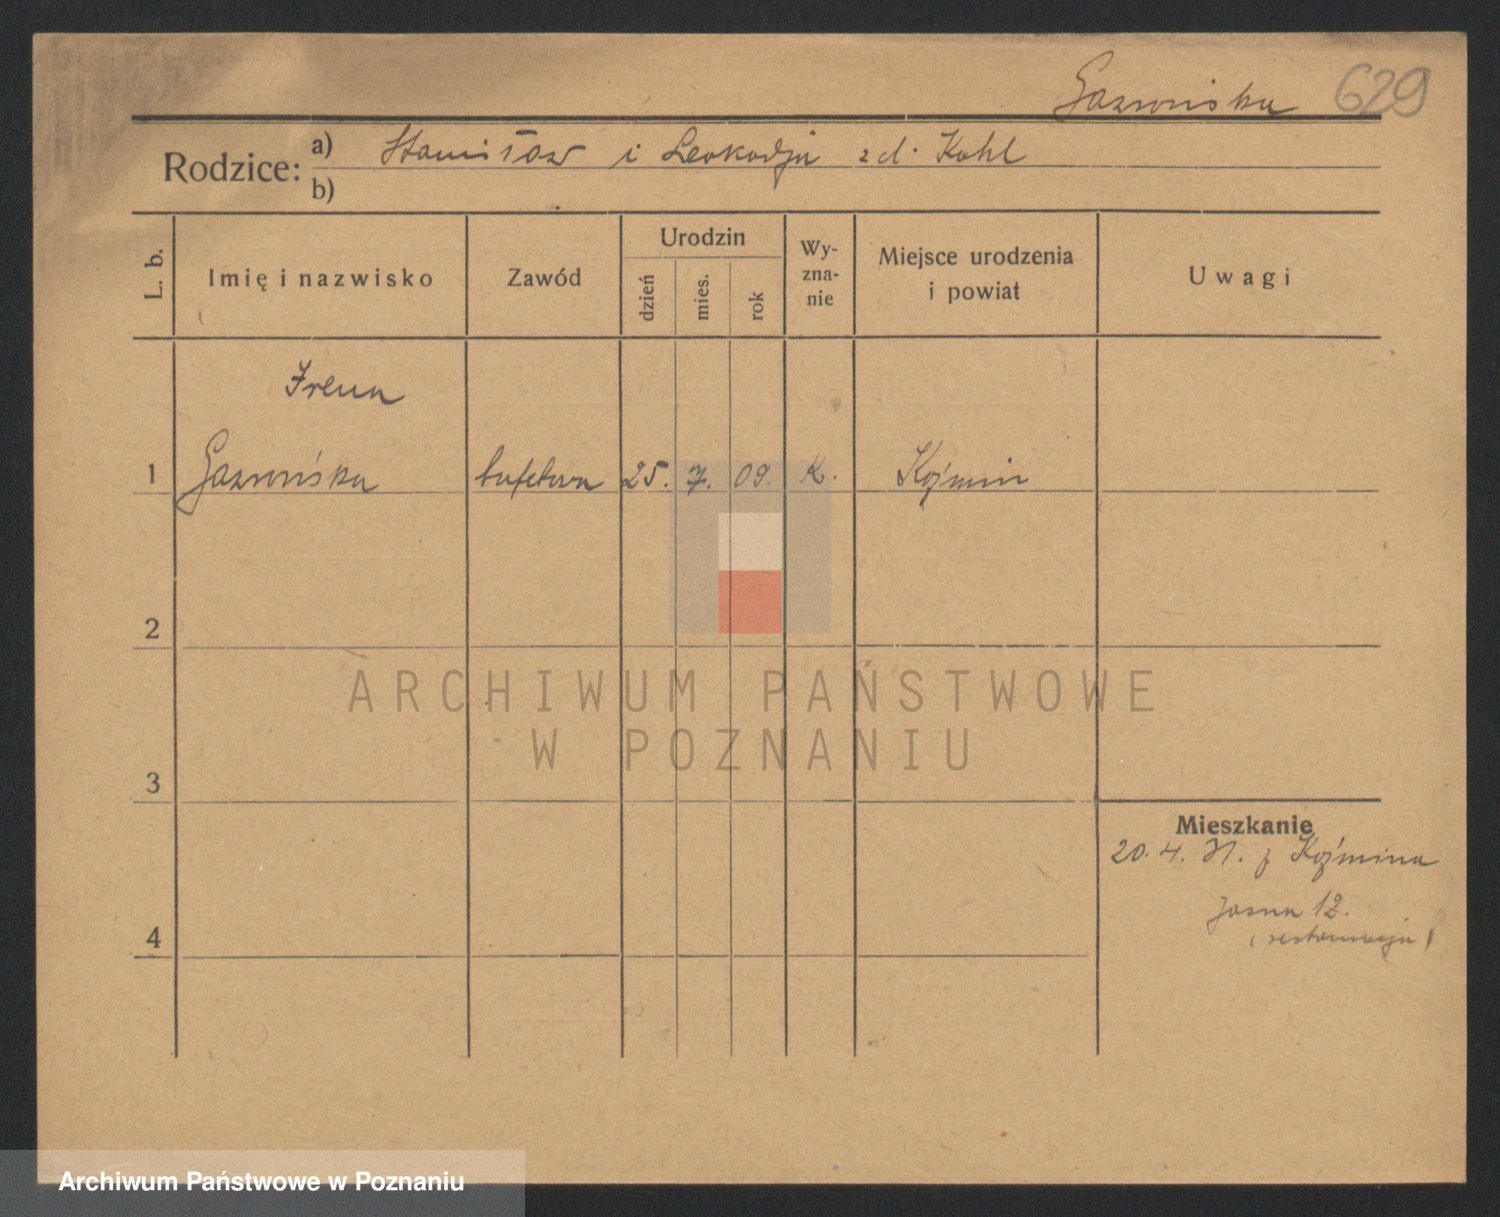 Gazwińska 629
Rodzice: a) Stanisław i Leokadja z d. Kohl
b)
L. b. Imię i nazwisko Zawód Urodzin dzień mies. rok Wy-zna-nie Miejsce urodzenia i powiat Uwagi
Irena
1 bufetowa 25. 7. 09. K. Koźmin
2
ARCHIWUM PAŃSTWOWE
W POZNANIU
3
Mieszkanie
20. 4. 31. z Koźmina
Jasna 12.
4 (restauracja)
Archiwum Państwowe w Poznaniu